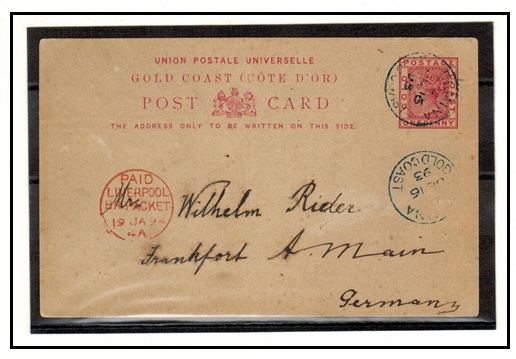 UNION POSTALE UNIVERSELLE
GOLD COAST (CÔTE D'OR)
POST CARD
THE ADDRESS ONLY TO BE WRITTEN ON THIS SIDE.
POSTAGE
ONE PENNY
GOLD COAST
16
93
PAID
LIVERPOOL
BR. PACKET
19 JA 94
4A
Wilhelm Rider
Frankfort A. Main
Germany